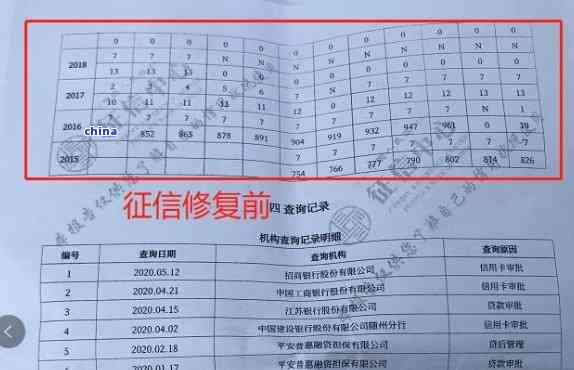 0 0 0 0 0 0 0 0 0 0 0 0
2018 7 7 7 N N N N N N N N N
13 13 13 0 0 0 0 0 0 0 0 0
2017 2 4 5 6 7 7 7 7 7 7 7
10 11 11 11 11 12 0 12 12 12 13 13
2016 7 7 7 7 7 7 7 7 7 N 1
china 852 865 878 891 904 919 932 947 961 0 39
2015 7 7 7 7 7 7 7
754 766 777 790 802 814 826
征信中心
征信修复前
四 查询记录
机构查询记录明细
编号 查询日期 查询机构 查询原因
1 2020.05.12 招商银行股份有限公司 信用卡审批
2 2020.04.21 中国工商银行股份有限公司 信用卡审批
3 2020.04.15 江苏银行股份有限公司 贷款审批
4 2020.04.02 中国建设银行股份有限公司随州分行 信用卡审批
5 2020.02.18 平安普惠融资担保有限公司 贷后管理
6 2020.01.17 平安普惠融资担保有限公司 贷款审批
本报告仅供您了解自己的信用状况使用